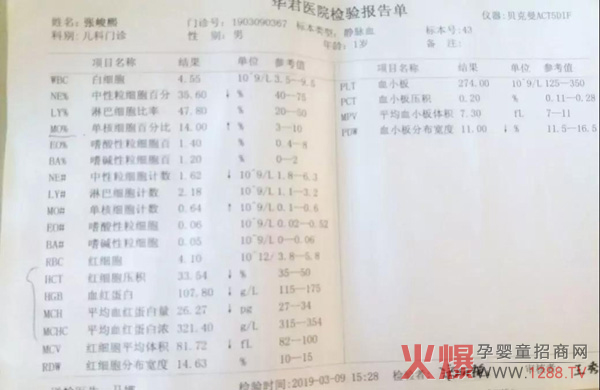 华君医院检验报告单
姓名：张峻熙 门诊号：1903090367 标本类型：静脉血 仪器：贝克曼ACT5DIF
科别：儿科门诊 性 别：男 年龄：1岁 标本号：43
备 注：
项目名称 结果 单位 参考值 项目名称 结果 单位 参考值
WBC 白细胞 4.55 10^9/L 3.5-9.5 PLT 血小板 274.00 10^9/L 125-350
NE% 中性粒细胞百分 35.60 ↓ % 40-75 PCT 血小板压积 0.20 % 0.11-0.28
LY% 淋巴细胞比率 47.80 % 20-50 MPV 平均血小板体积 7.30 fL 7-11
MO% 单核细胞百分比 14.00 ↑ % 3-10 PDW 血小板分布宽度 11.00 ↓ % 11.5-16.5
EO% 嗜酸性粒细胞百 1.40 % 0.4-8
BA% 嗜碱性粒细胞百 1.20 % 0-2
NE# 中性粒细胞计数 1.62 ↓ 10^9/L 1.8-6.3
LY# 淋巴细胞计数 2.18 10^9/L 1.1-3.2
MO# 单核细胞计数 0.64 ↑ 10^9/L 0.1-0.6
EO# 嗜酸性粒细胞 0.06 10^9/L 0.02-0.52
BA# 嗜碱性粒细胞 0.05 10^9/L 0-0.06
RBC 红细胞 4.10 10^12/ 3.8-5.8
HCT 红细胞压积 33.54 ↓ % 35-50
HGB 血红蛋白 107.80 ↓ g/L 115-175
MCH 平均血红蛋白量 26.27 ↓ pg 27-34
MCHC 平均血红蛋白浓 321.40 g/L 315-354
MCV 红细胞平均体积 81.72 ↓ fL 82-100
RDW 红细胞分布宽度 14.63 % 10-15
检验时间：2019-03-09 15:28 检验者
火爆孕婴童招商网
www.1288.TV